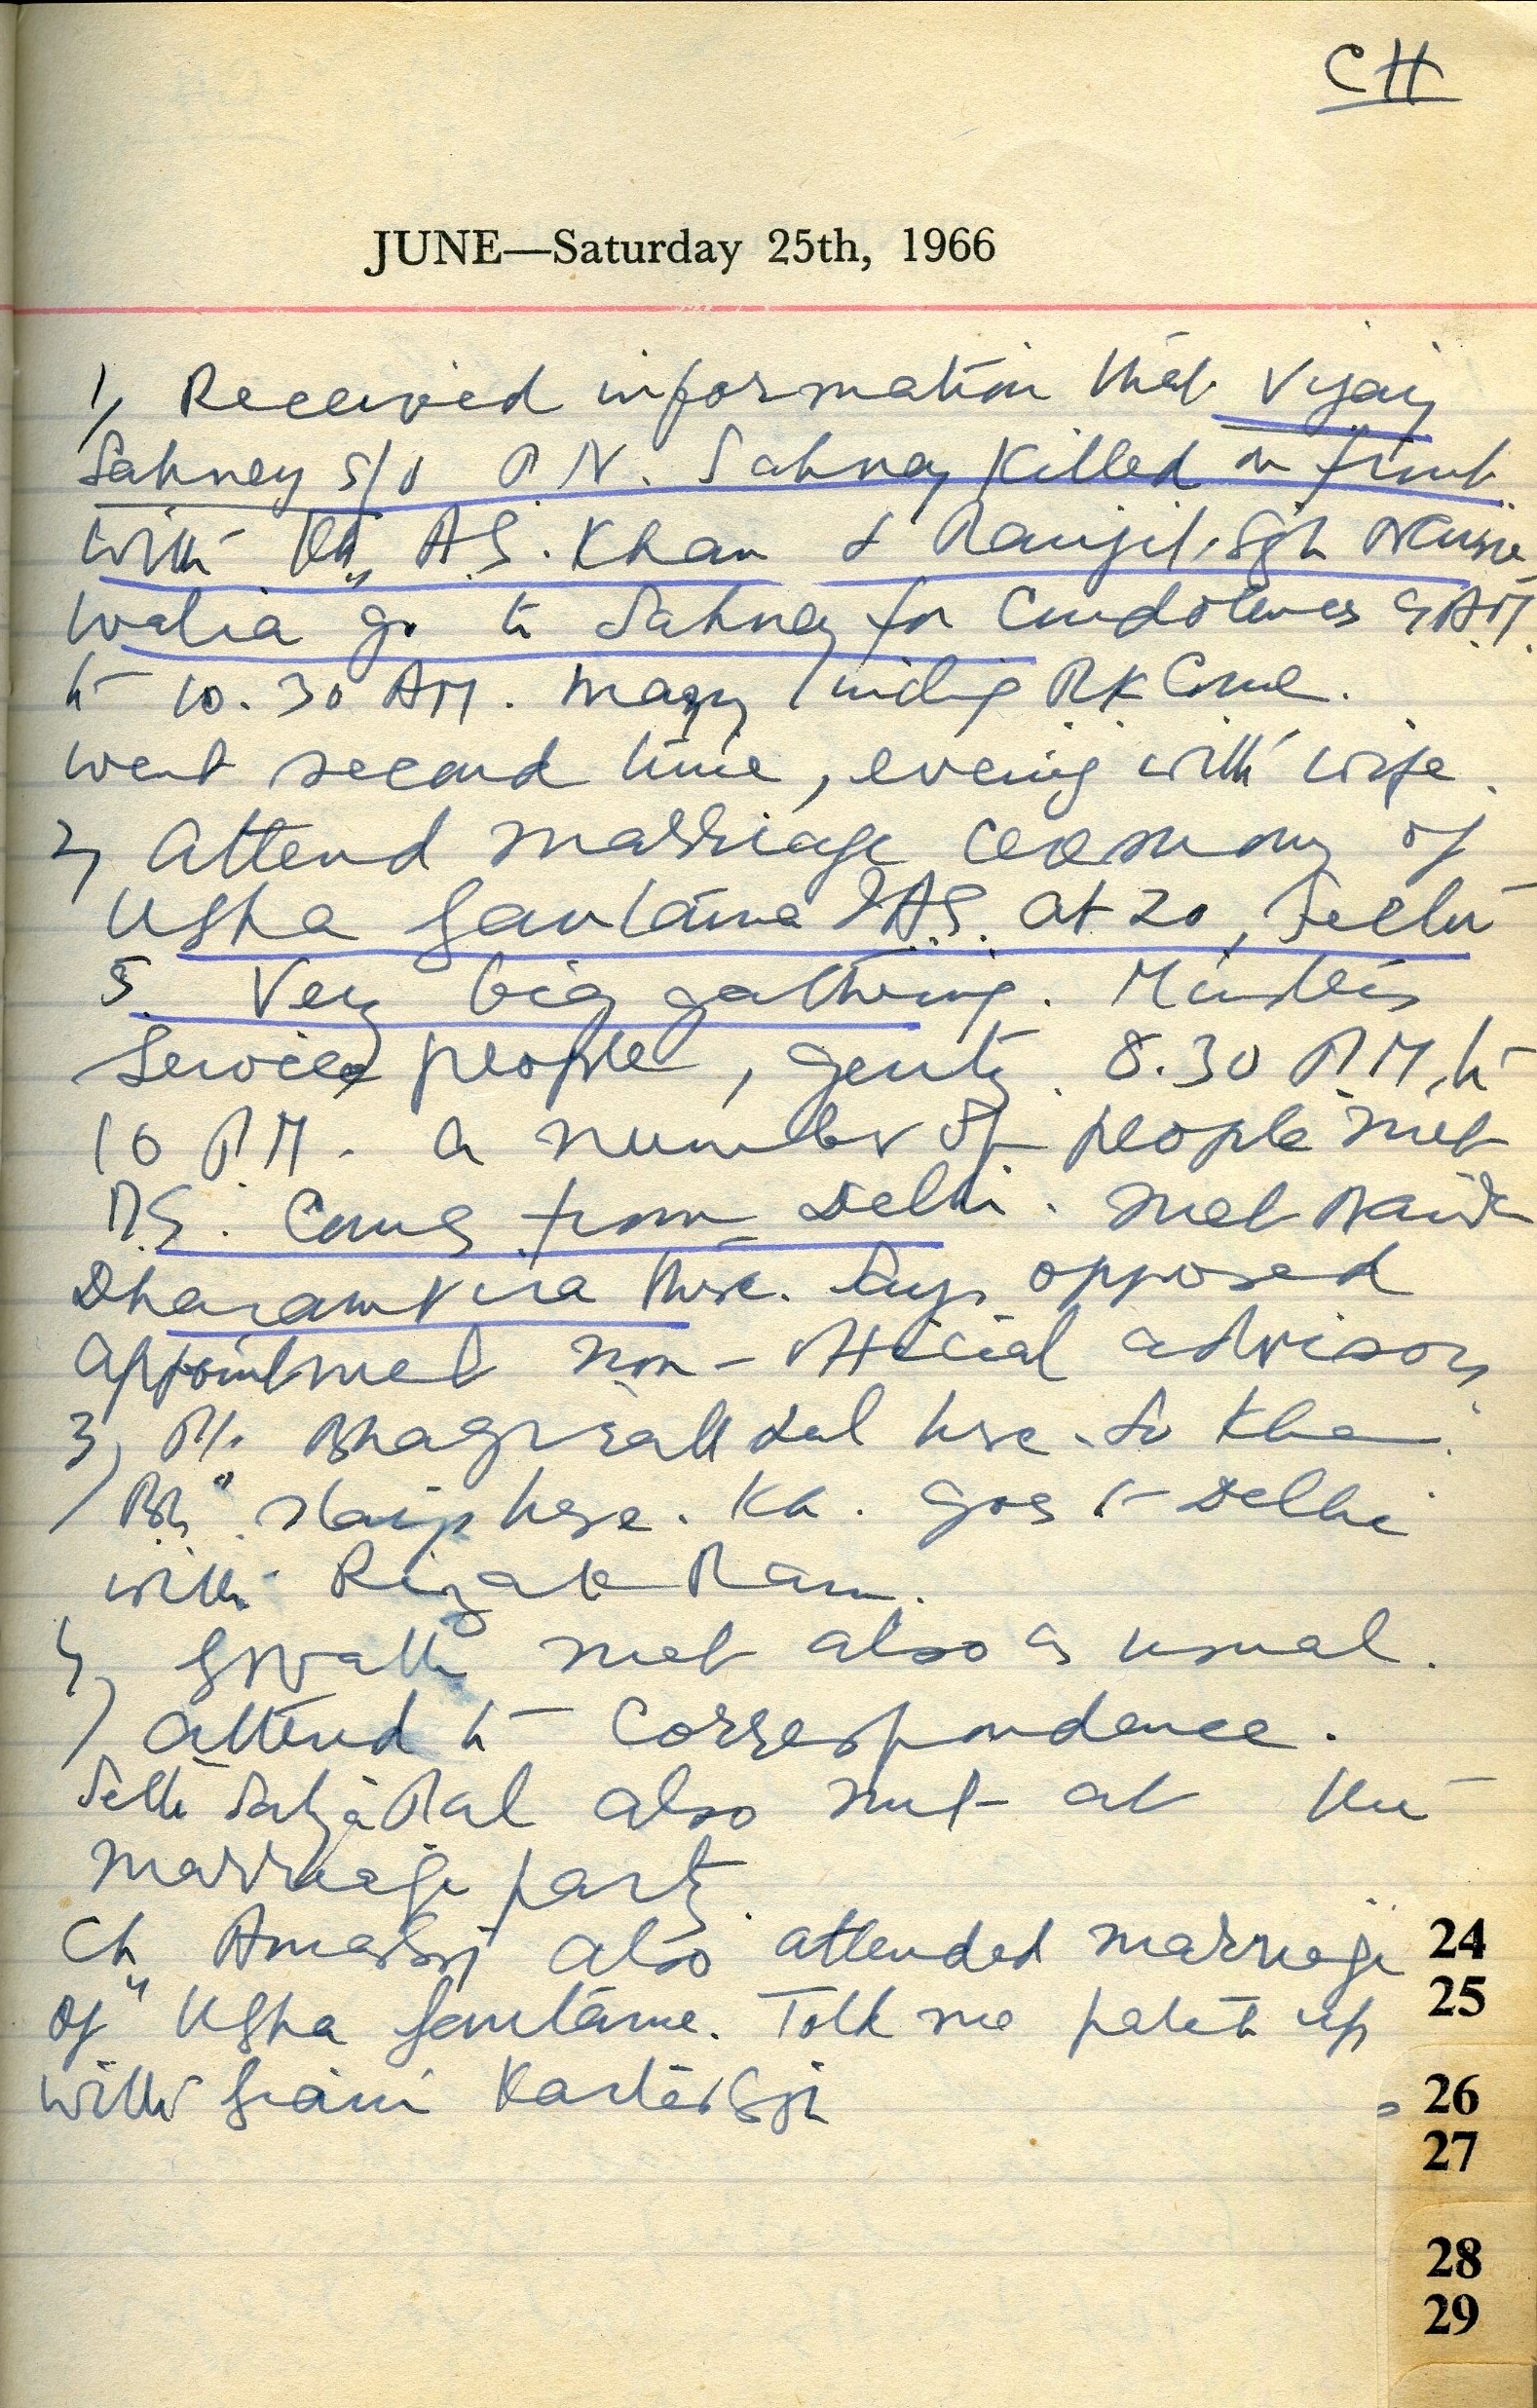 CH
JUNE—Saturday 25th, 1966
1) Received information that Vijay
Sahney s/o P.N. Sahney killed on front.
with A.S. Khan & Ranjit Sgh
walia go to Sahney for Condolences 9 AM
to 10.30 AM. Many RK Come.
went second time, evening with wife.
2) Attend marriage ceremony of
Usha Gautama IAS. at 20, Sector
5. Very big gathering. Ministers
Services people, gentry. 8.30 PM to
10 PM. a number of people met
P.S. Comes from Delhi. met
Dharam Vira there. Says opposed
appointment non-official advisors
3) Pt. Bhagirath Lal hse. So Khan.
hse. Kh. goes to Delhi
with Rizak Ram.
4) met also as usual.
attend to Correspondence.
Seth Satya Pal also met at the
marriage party.
Ch Amar Sgh also attended marriage
of Usha Gautama. Told me patch up
with Giani Kartar Sgh
24
25
26
27
28
29